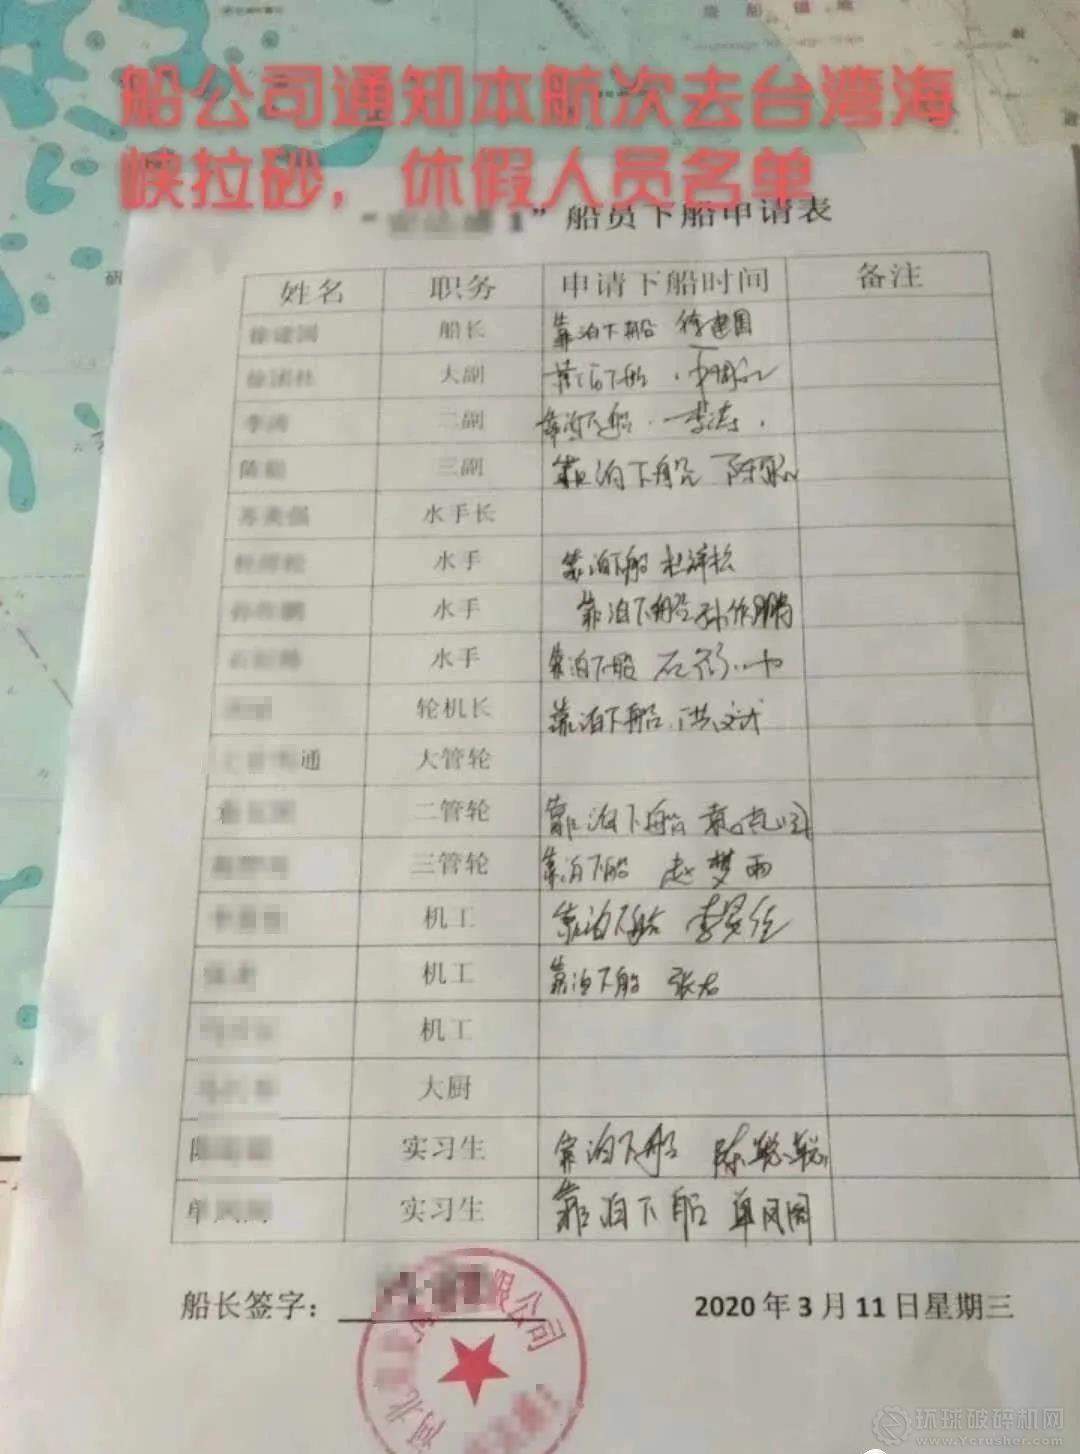 船公司通知本航次去台湾海
峡拉砂，休假人员名单
"1" 船员下船申请表
姓名 职务 申请下船时间 备注
船长 靠泊下船 徐建国
大副 靠泊下船
二副 靠泊下船 李涛
三副 靠泊下船 陈
水手长
水手 靠泊下船 杜洋松
水手 靠泊下船 孙作鹏
水手 靠泊下船 石
轮机长 靠泊下船 洪斌
通 大管轮
二管轮 靠泊下船 袁
三管轮 靠泊下船 赵梦雨
机工 靠泊下船 李
机工 靠泊下船 张
机工
大厨
实习生 靠泊下船 陈聪聪
单 实习生 靠泊下船 单风周
船长签字： 2020年3月11日星期三
河北 限公司
环球破碎机网
www.Ycrusher.com